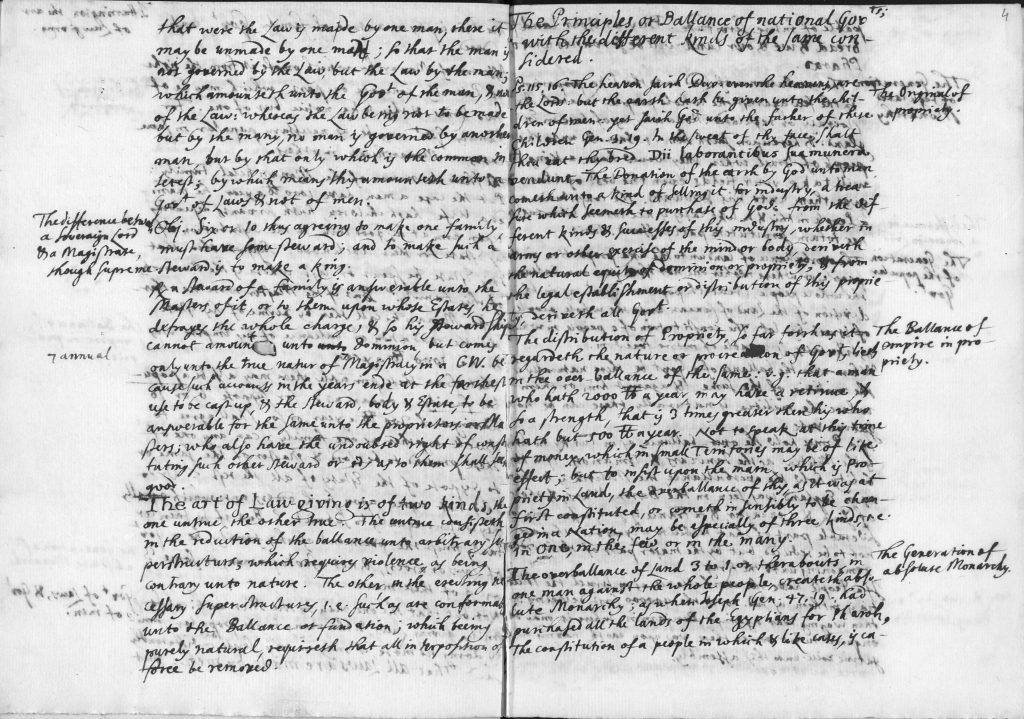 that were the Law is made by one man, there it
may be unmade by one man; so that the man is
not governed by the Law but the Law by the man;
which amounteth unto the Govt of the man, & not
of the Law: whereas the Law being not to be made
but by the many, no man is governed by another
man, but by that only which is the common in-
terest; by which means this amounteth unto a
Govt of Laws & not of men.
The difference between
a soveraign Lord
& a Magistrate,
though supreme
Obj. Six or 10 thus agreeing to make one family
must have some steward; and to make such a
steward is to make a king.
steward of a family is answerable unto the
Masters of it, or to them upon whose Estates he
defrayes the whole charge, & so his stewardship
cannot amount unto Dominion but comes
7 annual
only unto the true nature of Magistracy in a CW. be
cause such accounts in the years ende at the farthest
use to be cast up, & the steward, body & Estate, to be
answerable for the same unto the proprietors or Ma
sters; who also have the undoubted right of consti
tuting such other steward or to them shall seem
good.
The art of Law-giving is of two kinds, the
one untrue, the other true. The untrue consisteth
in the reduction of the ballance unto arbitrary su
perstructures, which requires violence, as being
contrary unto nature. The other, in the erecting ne
cessary superstructures, i.e. such as are conformable
unto the Ballance or fundation; which being
purely natural, requireth that all interposition of
force be removed.
4
The Principles or Ballance of national Govts;
with the different kinds of the same con-
sidered.
Ps. 115. 16. The heaven saith David even the heavens are
the Lords: but the earth hath he given unto the chil-
dren of men. yet saith God unto the father of these
children Gen. 3. 19. In the sweat of thy face shalt
thou eat thy bred. Dii laborantibus sua munera
vendunt. The Donation of the earth by God unto men
cometh unto a kind of selling it for industry, a trea
sure which seemeth to purchase of God. from the dif-
ferent kinds & successes of this industry, whether in
arms or other exercise of the mind or body, deriveth
the natural equity of dominion or propriety; & from
the legal establishment or distribution of this proprie-
ty deriveth all Govt.
The Original of
propriety
The distribution of Propriety, so far forth as it
regardeth the nature or procreation of Govt, lyeth
in the over ballance of the same. e.g. that a man
who hath 2000 ℔ a year, may have a retinue &
so a strength, that is 3 times greater then his who
hath but 500 ℔ a year. Not to speak at this time
of money, which in small Territories may be of like
effect; but to insist upon the main, which is Pro-
priety in Land, the overballance of this, as it was at
first constituted, or cometh insensibly to be chan-
ged in a Nation, may be especially of three kinds, i.e.
in one, in the few or in the many.
The Ballance of
empire in pro-
priety.
The overballance of Land 3 to 1. or therabouts in
one man against the whole people, createth abso-
lute Monarchy; as when Joseph Gen. 47. 19. had
purchased all the lands of the Egyptians for Pharoh,
The constitution of a people in which & like cases, is ca-
The Generation of
absolute Monarchy.